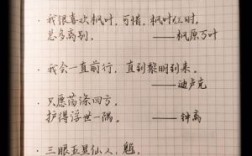 ·我很喜欢枫叶,可惜,枫叶红时,
总多离别。 ——枫原万叶
·我会一直前行,直到黎明到来。
——迪卢克
·只愿荡涤四方,
护得浮世一隅。 ——钟离
·三眼五显仙人,魈,